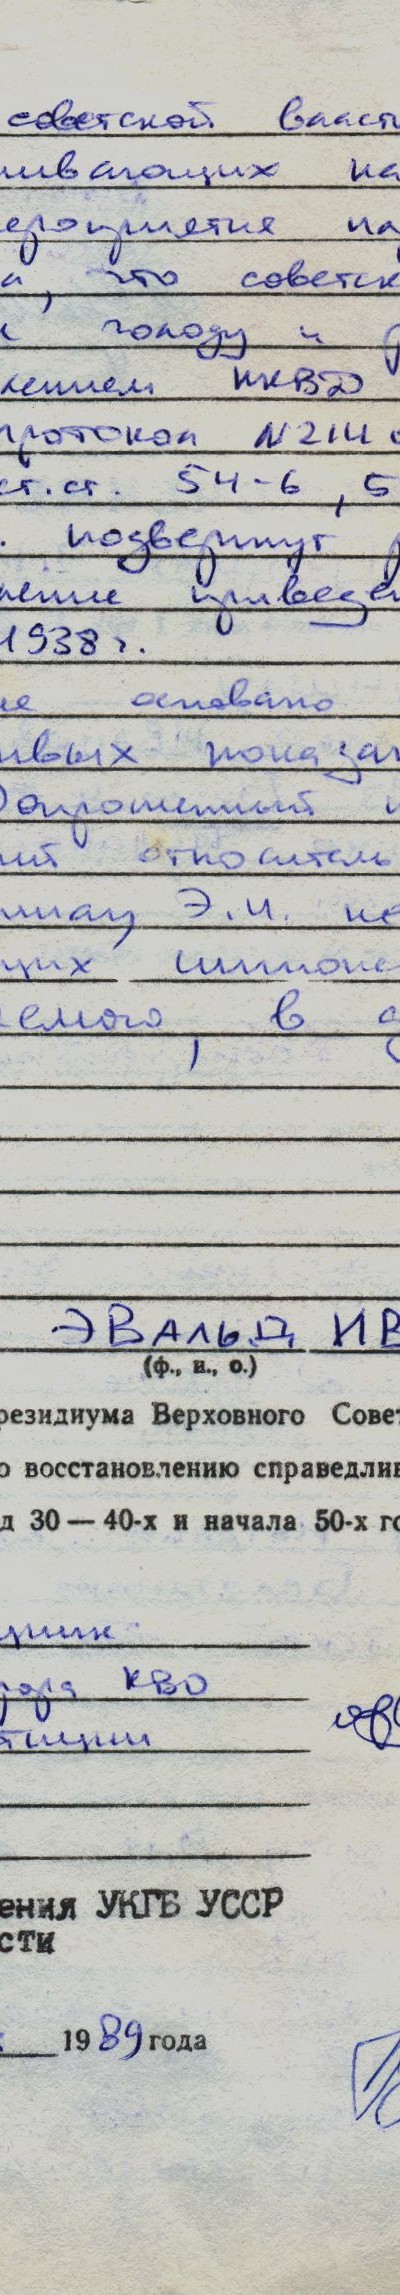 советской власт
ивающих на
ероприятия па
а, что советск
к голоду и р
лением НКВД
протокол N214
ст.ст. 54-6, 5
. подвергнут р
нение приведен
1938 г.
ие основано
ивых показан
Допрошенный
ний относитель
Э.И. не
щих шпионс
аемого, в д
ЭВАЛЬД ИВ
(ф., и., о.)
резидиума Верховного Совет
о восстановлению справедлив
д 30 — 40-х и начала 50-х го
щник
рора КВО
стиции
ения УКГБ УССР
сти
1989 года